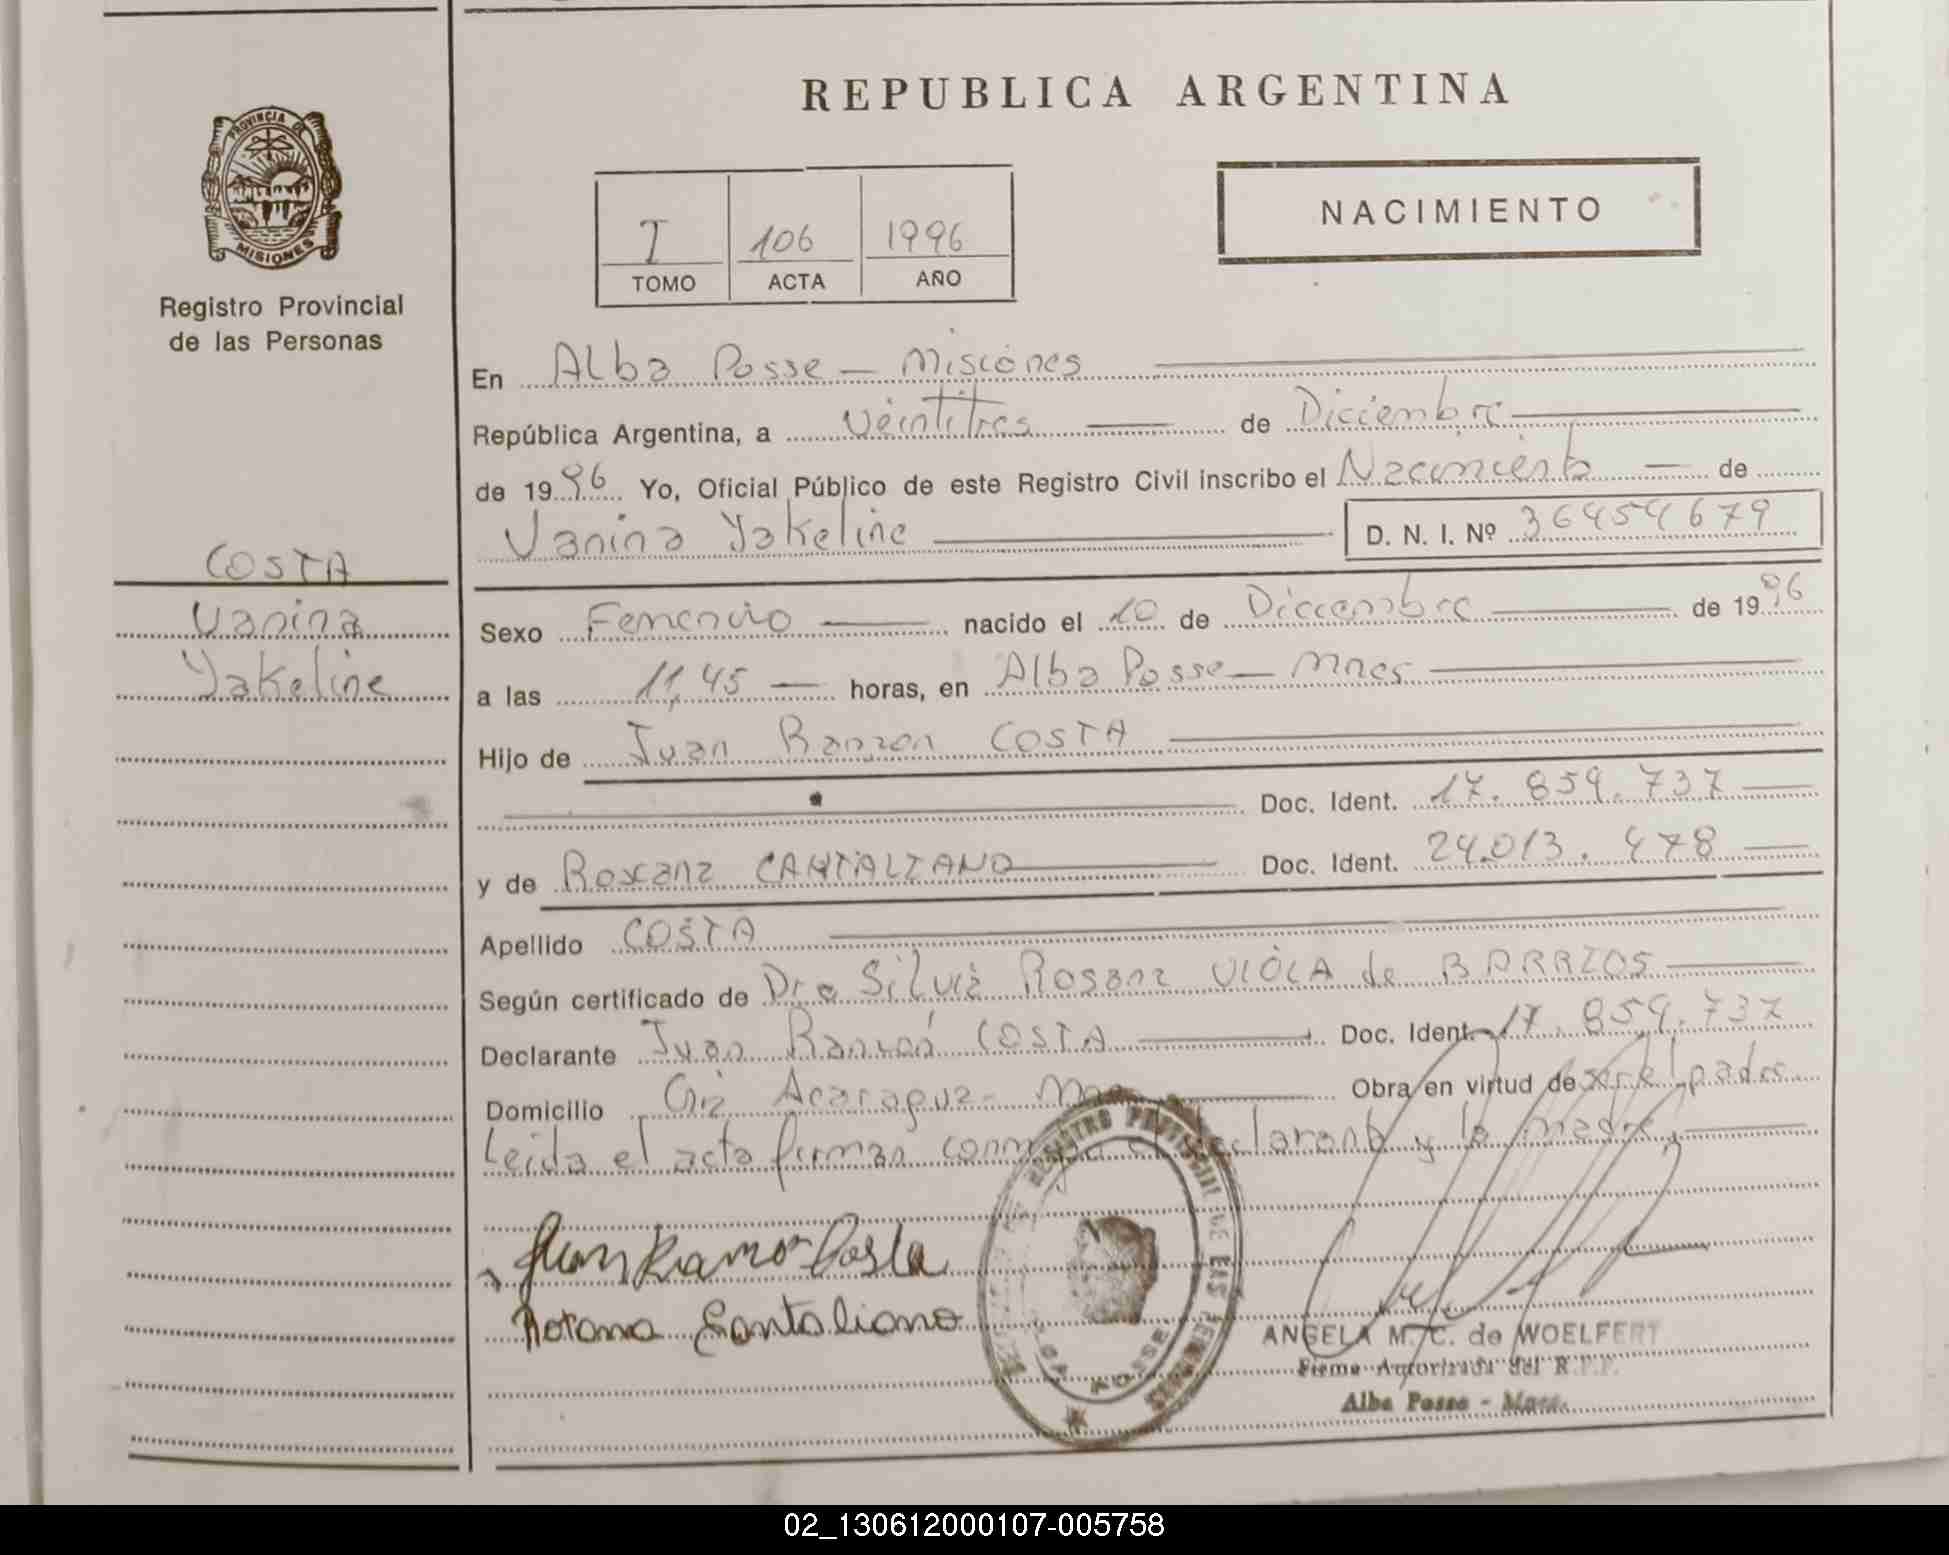 REPUBLICA ARGENTINA
PROVINCIA DE
MISIONES
Registro Provincial
de las Personas
I 106 1996
TOMO ACTA AÑO
NACIMIENTO
En Alba Posse — Misiones
República Argentina, a Veintitres de Diciembre
de 1996 Yo, Oficial Público de este Registro Civil inscribo el Nacimiento — de
Vanina Yakeline D. N. I. Nº 36454679
COSTA
Vanina
Yakeline
Sexo Femenino nacido el 10 de Diciembre de 1996
a las 11,45 — horas, en Alba Posse — Mnes
Hijo de Juan Ramon COSTA
Doc. Ident. 17.859.737
y de Roxana CANTALIANO Doc. Ident. 24.013.478
Apellido COSTA
Según certificado de Dra Silvia Rosana VIOLA de BARRIOS
Declarante Juan Ramón COSTA Doc. Ident. 17.859.737
Domicilio Acaragua - Obra en virtud de ser el padre
Leida el acta firman conmigo el declarante y la madre
Juan Ramon Costa
Cantaliano
REGISTRO PROVINCIAL DE LAS PERSONAS
ALBA POSSE
ANGELA M. C. de WOELFERT
Firma Autorizada del R.P.P.
Alba Posse - Mnes.
02_130612000107-005758